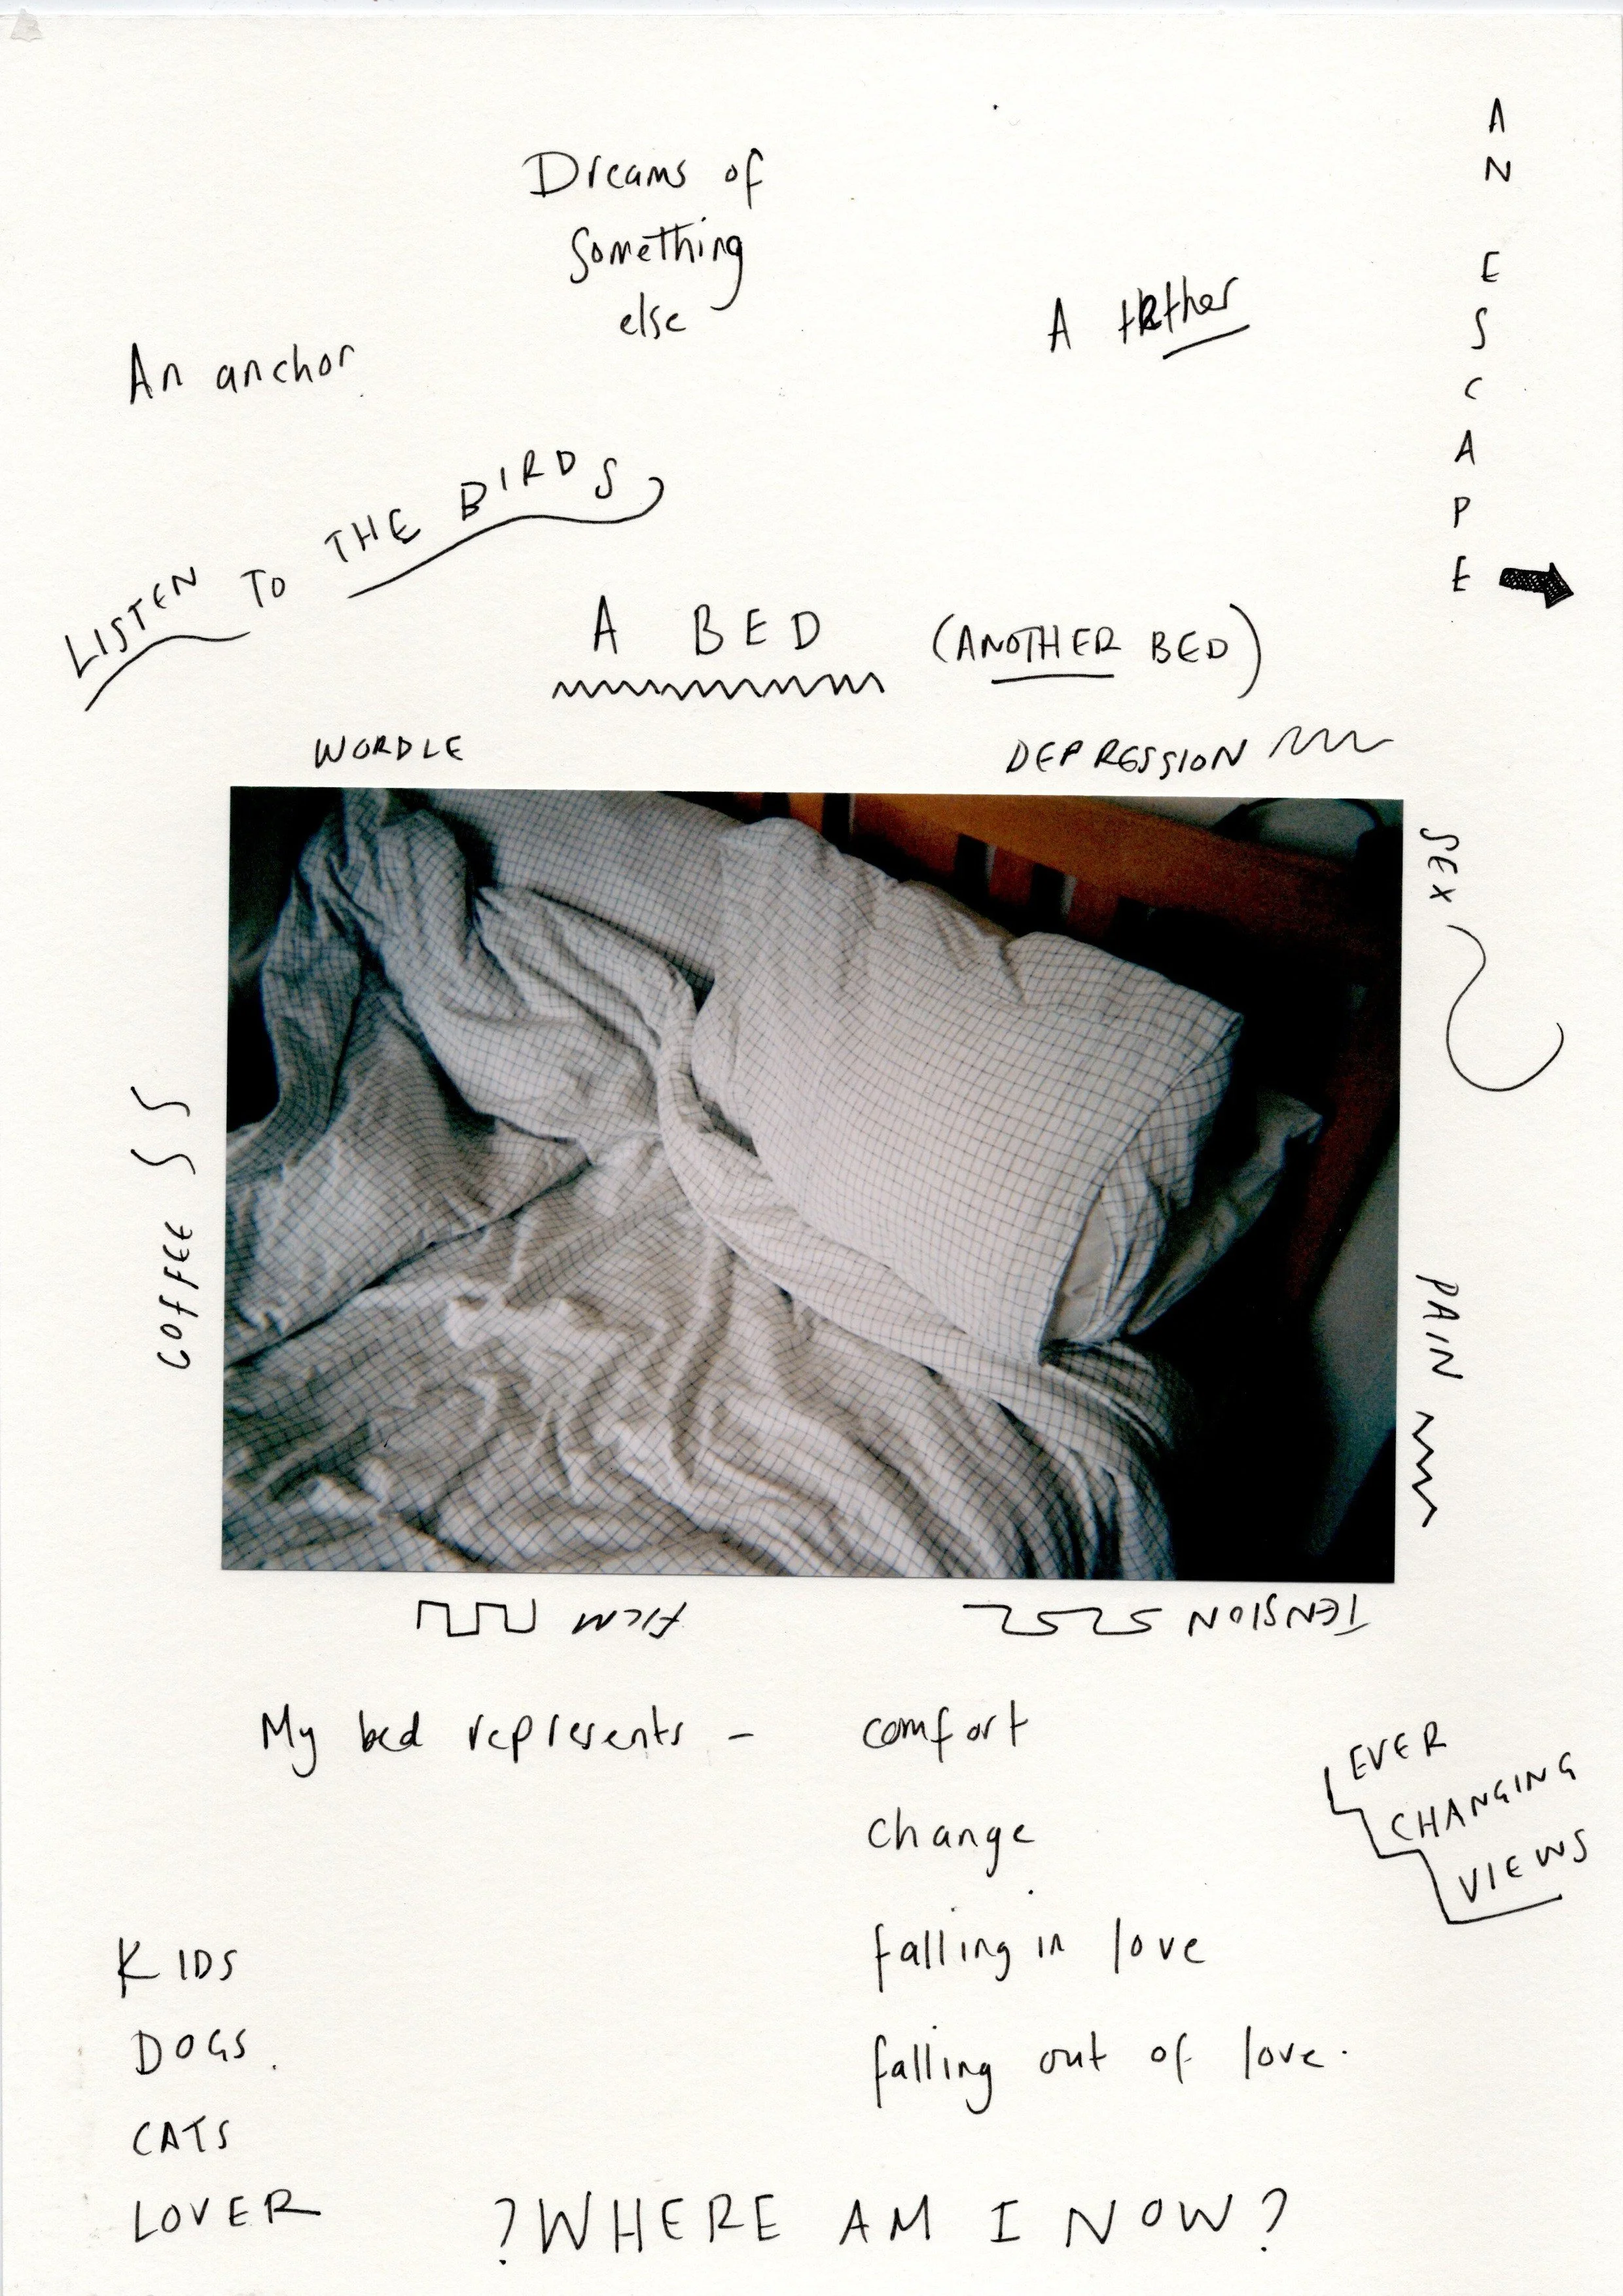 Dreams of
something
else
A tether
AN ESCAPE
An anchor
LISTEN TO THE BIRDS
A BED
(ANOTHER BED)
WORDLE
DEPRESSION
SEX
COFFEE
PAIN
FILM
TENSION
My bed represents - comfort
change
falling in love
falling out of love.
EVER
CHANGING
VIEWS
KIDS
DOGS.
CATS
LOVER
?WHERE AM I NOW?